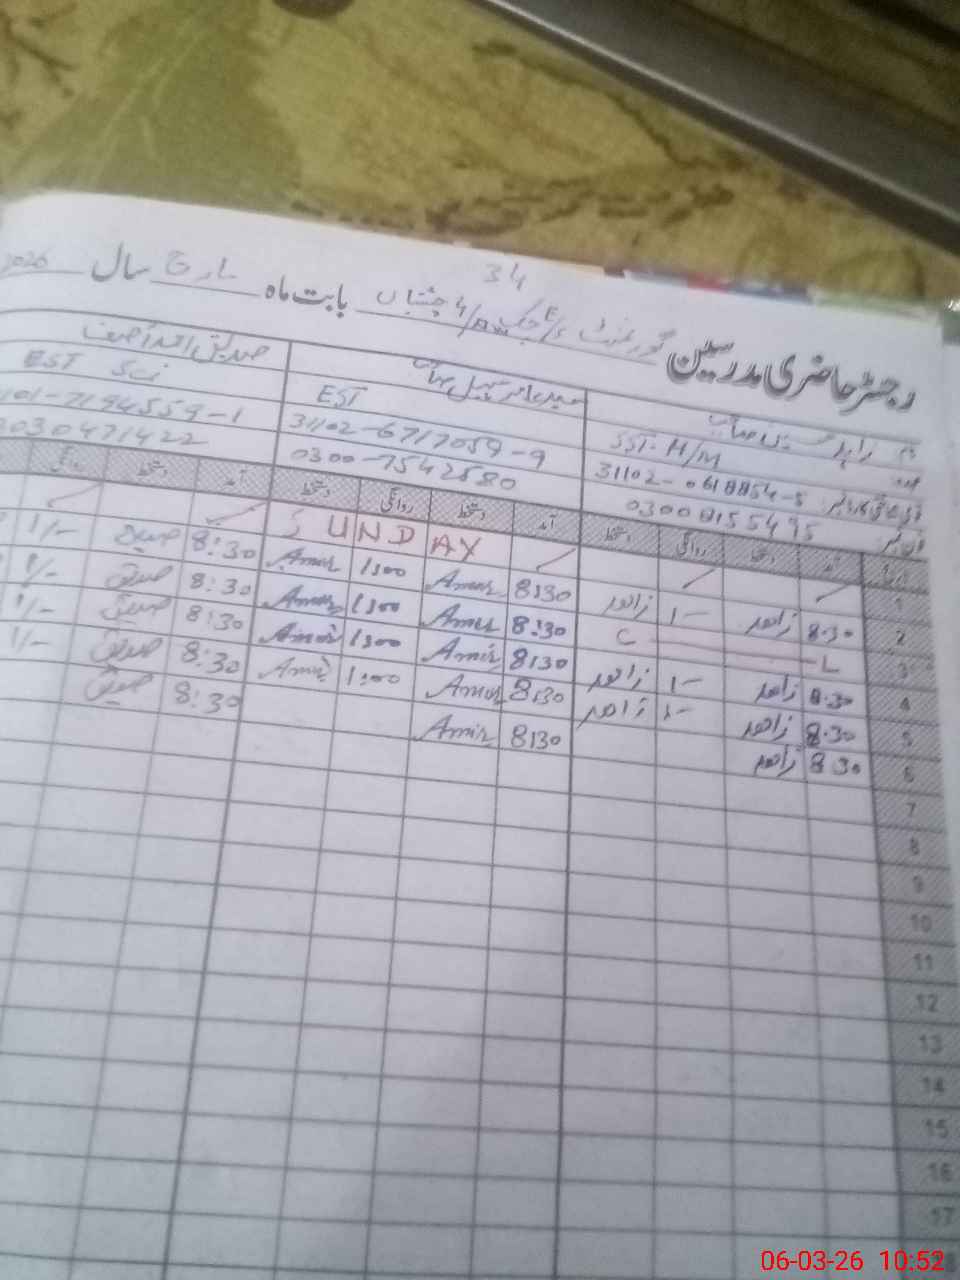 34
رجسٹر حاضری مدرسین گورنمنٹ E/S چک 4/ چشتیاں بابت ماہ مارچ سال 2026
نام زاہد
عہدہ SST-H/M EST EST Sci
31102-0618854-5 31102-6717059-9 101-7194559-1
فون نمبر 03008155495 0300-7542580 03030471422
آمد دستخط روانگی دستخط آمد دستخط روانگی دستخط آمد دستخط روانگی
1 SUNDAY
2 8:30 زاھد 1- زاھد 8:30 Amir 1:00 Amir 8:30 صدیق 1/-
3 C L 8:30 Amir 1:00 Amir 8:30 صدیق 1/-
4 8:30 زاھد 1- زاھد 8:30 Amir 1:00 Amir 8:30 صدیق 1/-
5 8:30 زاھد 1- زاھد 8:30 Amir 1:00 Amir 8:30 صدیق 1/-
6 8:30 زاھد 8:30 Amir 8:30 صدیق
7
8
9
10
11
12
13
14
15
16
17
18
06-03-26 10:52